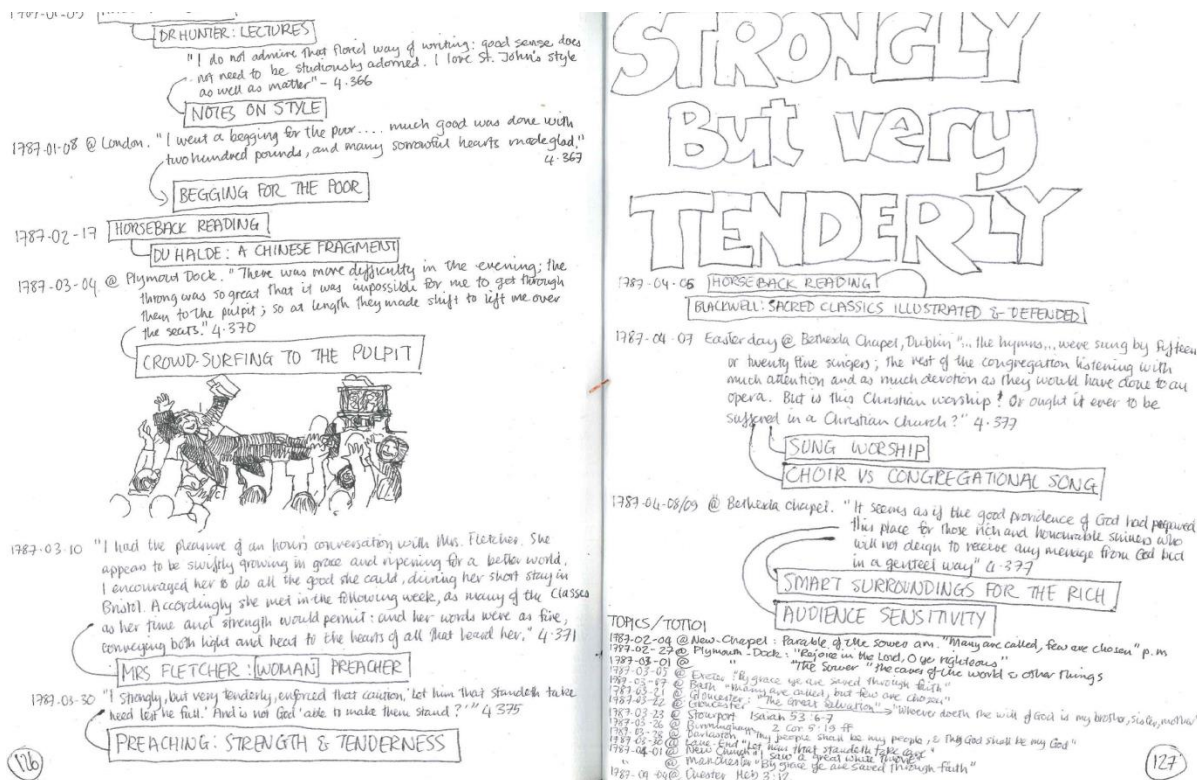 1787-01-03
DR HUNTER: LECTURES
"I do not admire that florid way of writing: good sense does
not need to be studiously adorned. I love St. John's style
as well as matter" - 4.366
NOTES ON STYLE
1787-01-08 @ London. "I went a begging for the poor.... much good was done with
two hundred pounds, and many sorrowful hearts made glad."
4.367
BEGGING FOR THE POOR
1787-02-17 HORSEBACK READING
DU HALDE: A CHINESE FRAGMENT
1787-03-04 @ Plymout Dock. "There was more difficulty in the evening; the
throng was so great that it was impossible for me to get through
them to the pulpit; so at length they made shift to lift me over
the seats." 4.370
CROWD-SURFING TO THE PULPIT
1787-03-10 "I had the pleasure of an hour's conversation with Mrs. Fletcher. She
appears to be swiftly growing in grace and ripening for a better world.
I encouraged her to do all the good she could, during her short stay in
Bristol. Accordingly she met in the following week, as many of the Classes
as her time and strength would permit: and her words were as fire,
conveying both light and heat to the hearts of all that heard her." 4.371
MRS FLETCHER: [WOMAN] PREACHER
1787-03-30 "I strongly, but very tenderly, enforced that caution, 'Let him that standeth take
heed lest he fall.' And is not God 'able to make them stand?'" 4.375
PREACHING: STRENGTH & TENDERNESS
126
STRONGLY
But very
TENDERLY
1787-04-05 HORSEBACK READING
BLACKWELL: SACRED CLASSICS ILLUSTRATED & DEFENDED
1787-04-07 Easter day @ Bethesda Chapel, Dublin "... the hymns... were sung by fifteen
or twenty fine singers; the rest of the congregation listening with
much attention and as much devotion as they would have done to an
opera. But is this Christian worship? Or ought it ever to be
suffered in a Christian Church?" 4.377
SUNG WORSHIP
CHOIR VS CONGREGATIONAL SONG
1787-04-08/09 @ Bethesda Chapel. "It seems as if the good providence of God had prepared
this place for those rich and honourable sinners who
will not deign to receive any message from God but
in a genteel way" 4.377
SMART SURROUNDINGS FOR THE RICH
AUDIENCE SENSITIVITY
TOPICS/TOTTOI
1787-02-04 @ New-Chapel: Parable of the sower am. "Many are called, few are chosen" p.m
1787-02-27 @ Plymouth-Dock: "Rejoice in the Lord, O ye righteous"
1787-03-01 @ " "The Sower" "the cares of the world & other things
@ Exeter "By grace ye are saved through faith"
@ Bath "Many are called, but few are chosen"
@ Gloucester "The Great Salvation" → "Whoever doeth the will of God is my brother, sister, mother
@ Stourport Isaiah 53:6-7
@ Birmingham 2 Cor 5:19 ff
@ Darlaston "Thy people shall be my people, & thy God shall be my God"
@ Lane-End "Let him that standeth take care"
1787-04-01 @ New Church "I saw a great white throne"
" @ Manchester "By grace ye are saved through faith"
1787-04-04 @ Chester Heb 3:12
127